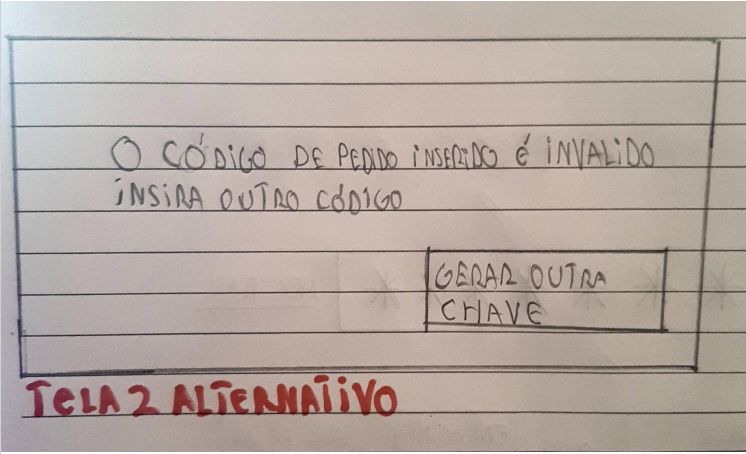 O CÓDIGO DE PEDIDO INSERIDO É INVALIDO
INSIRA OUTRO CÓDIGO
GERAR OUTRA
CHAVE
TELA 2 ALTERNATIVO